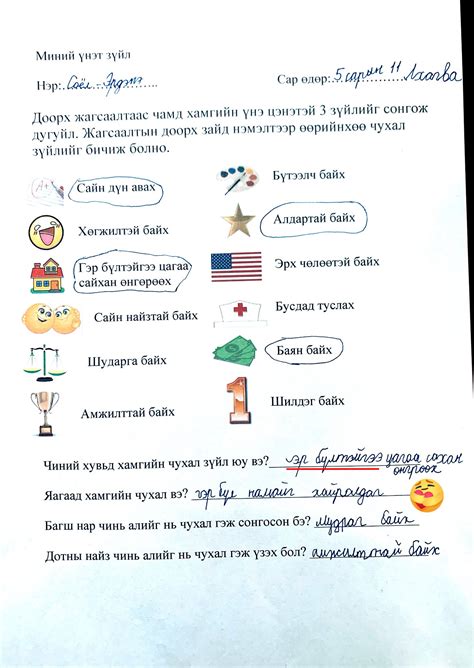 Миний үнэт зүйл
Нэр: Соёл-Эрдэнэ
Сар өдөр: 5 сарын 11 Лхагва
Доорх жагсаалтаас чамд хамгийн үнэ цэнэтэй 3 зүйлийг сонгож
дугуйл. Жагсаалтын доорх зайд нэмэлтээр өөрийнхөө чухал
зүйлийг бичиж болно.
Сайн дүн авах
Бүтээлч байх
Хөгжилтэй байх
Алдартай байх
Гэр бүлтэйгээ цагаа
сайхан өнгөрөөх
Эрх чөлөөтэй байх
Сайн найзтай байх
Бусдад туслах
Шударга байх
Баян байх
Амжилттай байх
1
Шилдэг байх
Чиний хувьд хамгийн чухал зүйл юу вэ? гэр бүлтэйгээ цагаа сахан
өнгрөөх
Яагаад хамгийн чухал вэ? гэр бүл намайг хайрладаг
Багш нар чинь алийг нь чухал гэж сонгосон бэ? Шудрага байх
Дотны найз чинь алийг нь чухал гэж үзэх бол? амжилттай байх